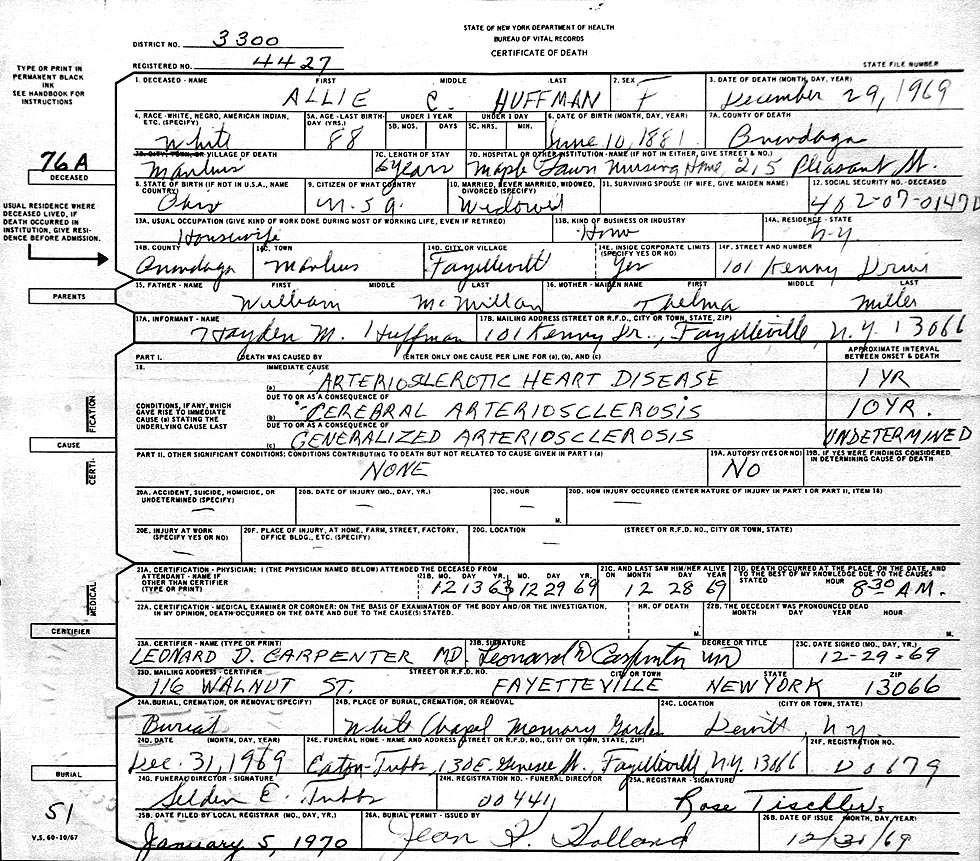 STATE OF NEW YORK DEPARTMENT OF HEALTH
BUREAU OF VITAL RECORDS
CERTIFICATE OF DEATH
DISTRICT NO. 3300
REGISTERED NO. 4427
STATE FILE NUMBER
TYPE OR PRINT IN
PERMANENT BLACK
INK
SEE HANDBOOK FOR
INSTRUCTIONS
1. DECEASED - NAME FIRST MIDDLE LAST 2. SEX 3. DATE OF DEATH (MONTH, DAY, YEAR)
ALLIE C. HUFFMAN F December 29, 1969
4. RACE - WHITE, NEGRO, AMERICAN INDIAN, ETC. (SPECIFY) 5A. AGE - LAST BIRTHDAY (YRS.) UNDER 1 YEAR 5B. MOS. DAYS UNDER 1 DAY 5C. HRS. MIN. 6. DATE OF BIRTH (MONTH, DAY, YEAR) 7A. COUNTY OF DEATH
White 88 June 10, 1881 Onondaga
76A
DECEASED
7B. CITY, TOWN, OR VILLAGE OF DEATH 7C. LENGTH OF STAY 7D. HOSPITAL OR OTHER INSTITUTION - NAME (IF NOT IN EITHER, GIVE STREET & NO.)
Manlius 6 years Maple Lawn Nursing Home, 215 Pleasant St.
8. STATE OF BIRTH (IF NOT IN U.S.A., NAME COUNTRY) 9. CITIZEN OF WHAT COUNTRY 10. MARRIED, NEVER MARRIED, WIDOWED, DIVORCED (SPECIFY) 11. SURVIVING SPOUSE (IF WIFE, GIVE MAIDEN NAME) 12. SOCIAL SECURITY NO. - DECEASED
Ohio U.S.A. Widowed 402-07-0147D
USUAL RESIDENCE WHERE
DECEASED LIVED, IF
DEATH OCCURRED IN
INSTITUTION, GIVE RESI-
DENCE BEFORE ADMISSION.
13A. USUAL OCCUPATION (GIVE KIND OF WORK DONE DURING MOST OF WORKING LIFE, EVEN IF RETIRED) 13B. KIND OF BUSINESS OR INDUSTRY 14A. RESIDENCE - STATE
Housewife Home N.Y.
14B. COUNTY 14C. TOWN 14D. CITY OR VILLAGE 14E. INSIDE CORPORATE LIMITS (SPECIFY YES OR NO) 14F. STREET AND NUMBER
Onondaga Manlius Fayetteville Yes 101 Kenny Drive
PARENTS
15. FATHER - NAME FIRST MIDDLE LAST 16. MOTHER - MAIDEN NAME FIRST MIDDLE LAST
William McMillan Thelma Miller
17A. INFORMANT - NAME 17B. MAILING ADDRESS (STREET OR R.F.D., CITY OR TOWN, STATE, ZIP)
Hayden M. Huffman 101 Kenny Dr., Fayetteville, N.Y. 13066
PART I. DEATH WAS CAUSED BY (ENTER ONLY ONE CAUSE PER LINE FOR (a), (b), AND (c) APPROXIMATE INTERVAL BETWEEN ONSET & DEATH
18. IMMEDIATE CAUSE
(a) ARTERIOSCLEROTIC HEART DISEASE 1 YR
CONDITIONS, IF ANY, WHICH GAVE RISE TO IMMEDIATE CAUSE (a) STATING THE UNDERLYING CAUSE LAST
DUE TO OR AS A CONSEQUENCE OF
(b) CEREBRAL ARTERIOSCLEROSIS 10 YR.
DUE TO OR AS A CONSEQUENCE OF
(c) GENERALIZED ARTERIOSCLEROSIS UNDETERMINED
CAUSE
CERTI-
FICATION
PART II. OTHER SIGNIFICANT CONDITIONS: CONDITIONS CONTRIBUTING TO DEATH BUT NOT RELATED TO CAUSE GIVEN IN PART I (a) 19A. AUTOPSY (YES OR NO) 19B. IF YES WERE FINDINGS CONSIDERED IN DETERMINING CAUSE OF DEATH
NONE NO
20A. ACCIDENT, SUICIDE, HOMICIDE, OR UNDETERMINED (SPECIFY) 20B. DATE OF INJURY (MO., DAY, YR.) 20C. HOUR M. 20D. HOW INJURY OCCURRED (ENTER NATURE OF INJURY IN PART I OR PART II, ITEM 18)
— — — —
20E. INJURY AT WORK (SPECIFY YES OR NO) 20F. PLACE OF INJURY, AT HOME, FARM, STREET, FACTORY, OFFICE BLDG., ETC. (SPECIFY) 20G. LOCATION (STREET OR R.F.D. NO., CITY OR TOWN, STATE)
— — —
MEDICAL
CERTIFIER
21A. CERTIFICATION - PHYSICIAN: I (THE PHYSICIAN NAMED BELOW) ATTENDED THE DECEASED FROM 21C. AND LAST SAW HIM/HER ALIVE ON 21D. DEATH OCCURRED AT THE PLACE, ON THE DATE, AND TO THE BEST OF MY KNOWLEDGE DUE TO THE CAUSES STATED HOUR
ATTENDANT - NAME IF OTHER THAN CERTIFIER (TYPE OR PRINT) 21B. MO. DAY YR. MO. DAY YR. MONTH DAY YEAR
12 13 63 12 29 69 12 28 69 8:30 A.M.
22A. CERTIFICATION - MEDICAL EXAMINER OR CORONER: ON THE BASIS OF EXAMINATION OF THE BODY AND/OR THE INVESTIGATION, IN MY OPINION, DEATH OCCURRED ON THE DATE AND DUE TO THE CAUSE(S) STATED. HR. OF DEATH M. 22B. THE DECEDENT WAS PRONOUNCED DEAD MONTH DAY YEAR HOUR M.
23A. CERTIFIER - NAME (TYPE OR PRINT) 23B. SIGNATURE DEGREE OR TITLE 23C. DATE SIGNED (MO., DAY, YR.)
LEONARD D. CARPENTER MD. Leonard D Carpenter MD 12-29-69
23D. MAILING ADDRESS - CERTIFIER STREET OR R.F.D. NO. CITY OR TOWN STATE ZIP
116 WALNUT ST. FAYETTEVILLE NEW YORK 13066
24A. BURIAL, CREMATION, OR REMOVAL (SPECIFY) 24B. PLACE OF BURIAL, CREMATION, OR REMOVAL 24C. LOCATION (CITY OR TOWN, STATE)
Burial White Chapel Memory Garden Dewitt, N.Y.
24D. DATE (MONTH, DAY, YEAR) 24E. FUNERAL HOME - NAME AND ADDRESS (STREET OR R.F.D. NO., CITY OR TOWN, STATE, ZIP) 24F. REGISTRATION NO.
Dec. 31, 1969 Eaton-Tubbs, 130 E. Genesee St., Fayetteville N.Y. 13066 00679
BURIAL
24G. FUNERAL DIRECTOR - SIGNATURE 24H. REGISTRATION NO. - FUNERAL DIRECTOR 25A. REGISTRAR - SIGNATURE
Selden E. Tubbs 00441 Rose Tischler
51
25B. DATE FILED BY LOCAL REGISTRAR (MO., DAY, YEAR) 26A. BURIAL PERMIT - ISSUED BY 26B. DATE OF ISSUE (MONTH, DAY, YEAR)
January 5, 1970 Jean Holland 12/31/69
V.S. 60-10/67